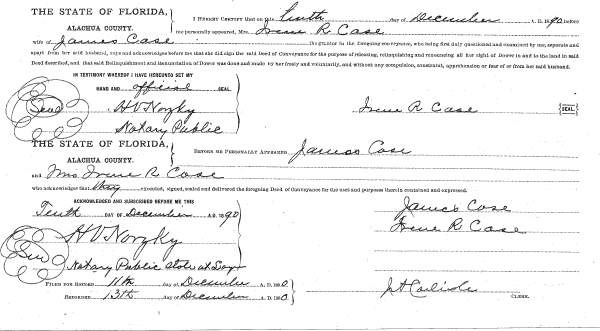 THE STATE OF FLORIDA,
ALACHUA COUNTY.
I HEREBY CERTIFY that on this Tenth day of December A. D. 1890 before
me personally appeared, Mrs. Irene R Case
wife of James Case the grantor in the foregoing conveyance, who being first duly questioned and examined by me, separate and
apart from her said husband, says and acknowledges before me that she did sign the said Deed of Conveyance for the purpose of releasing, relinquishing and renouncing all her right of Dower in and to the land in said
Deed described, and that said Relinquishment and Renunciation of Dower was done and made by her freely and voluntarily, and without any compulsion, constraint, apprehension or fear of or from her said husband.
IN TESTIMONY WHEREOF I HAVE HEREUNTO SET MY
HAND AND official SEAL.
Seal
Irene R Case {SEAL.}
Notary Public
THE STATE OF FLORIDA,
ALACHUA COUNTY.
BEFORE ME PERSONALLY APPEARED James Case
and Mrs Irene R Case
who acknowledges that they executed, signed, sealed and delivered the foregoing Deed of Conveyance for the uses and purposes therein contained and expressed.
ACKNOWLEDGED AND SUBSCRIBED BEFORE ME THIS
Tenth DAY OF December A.D. 1890
James Case
Irene R Case
Seal
Notary Public State at
FILED FOR RECORD 11th day of December A. D. 1890
RECORDED 13th day of December A. D. 1890
CLERK.